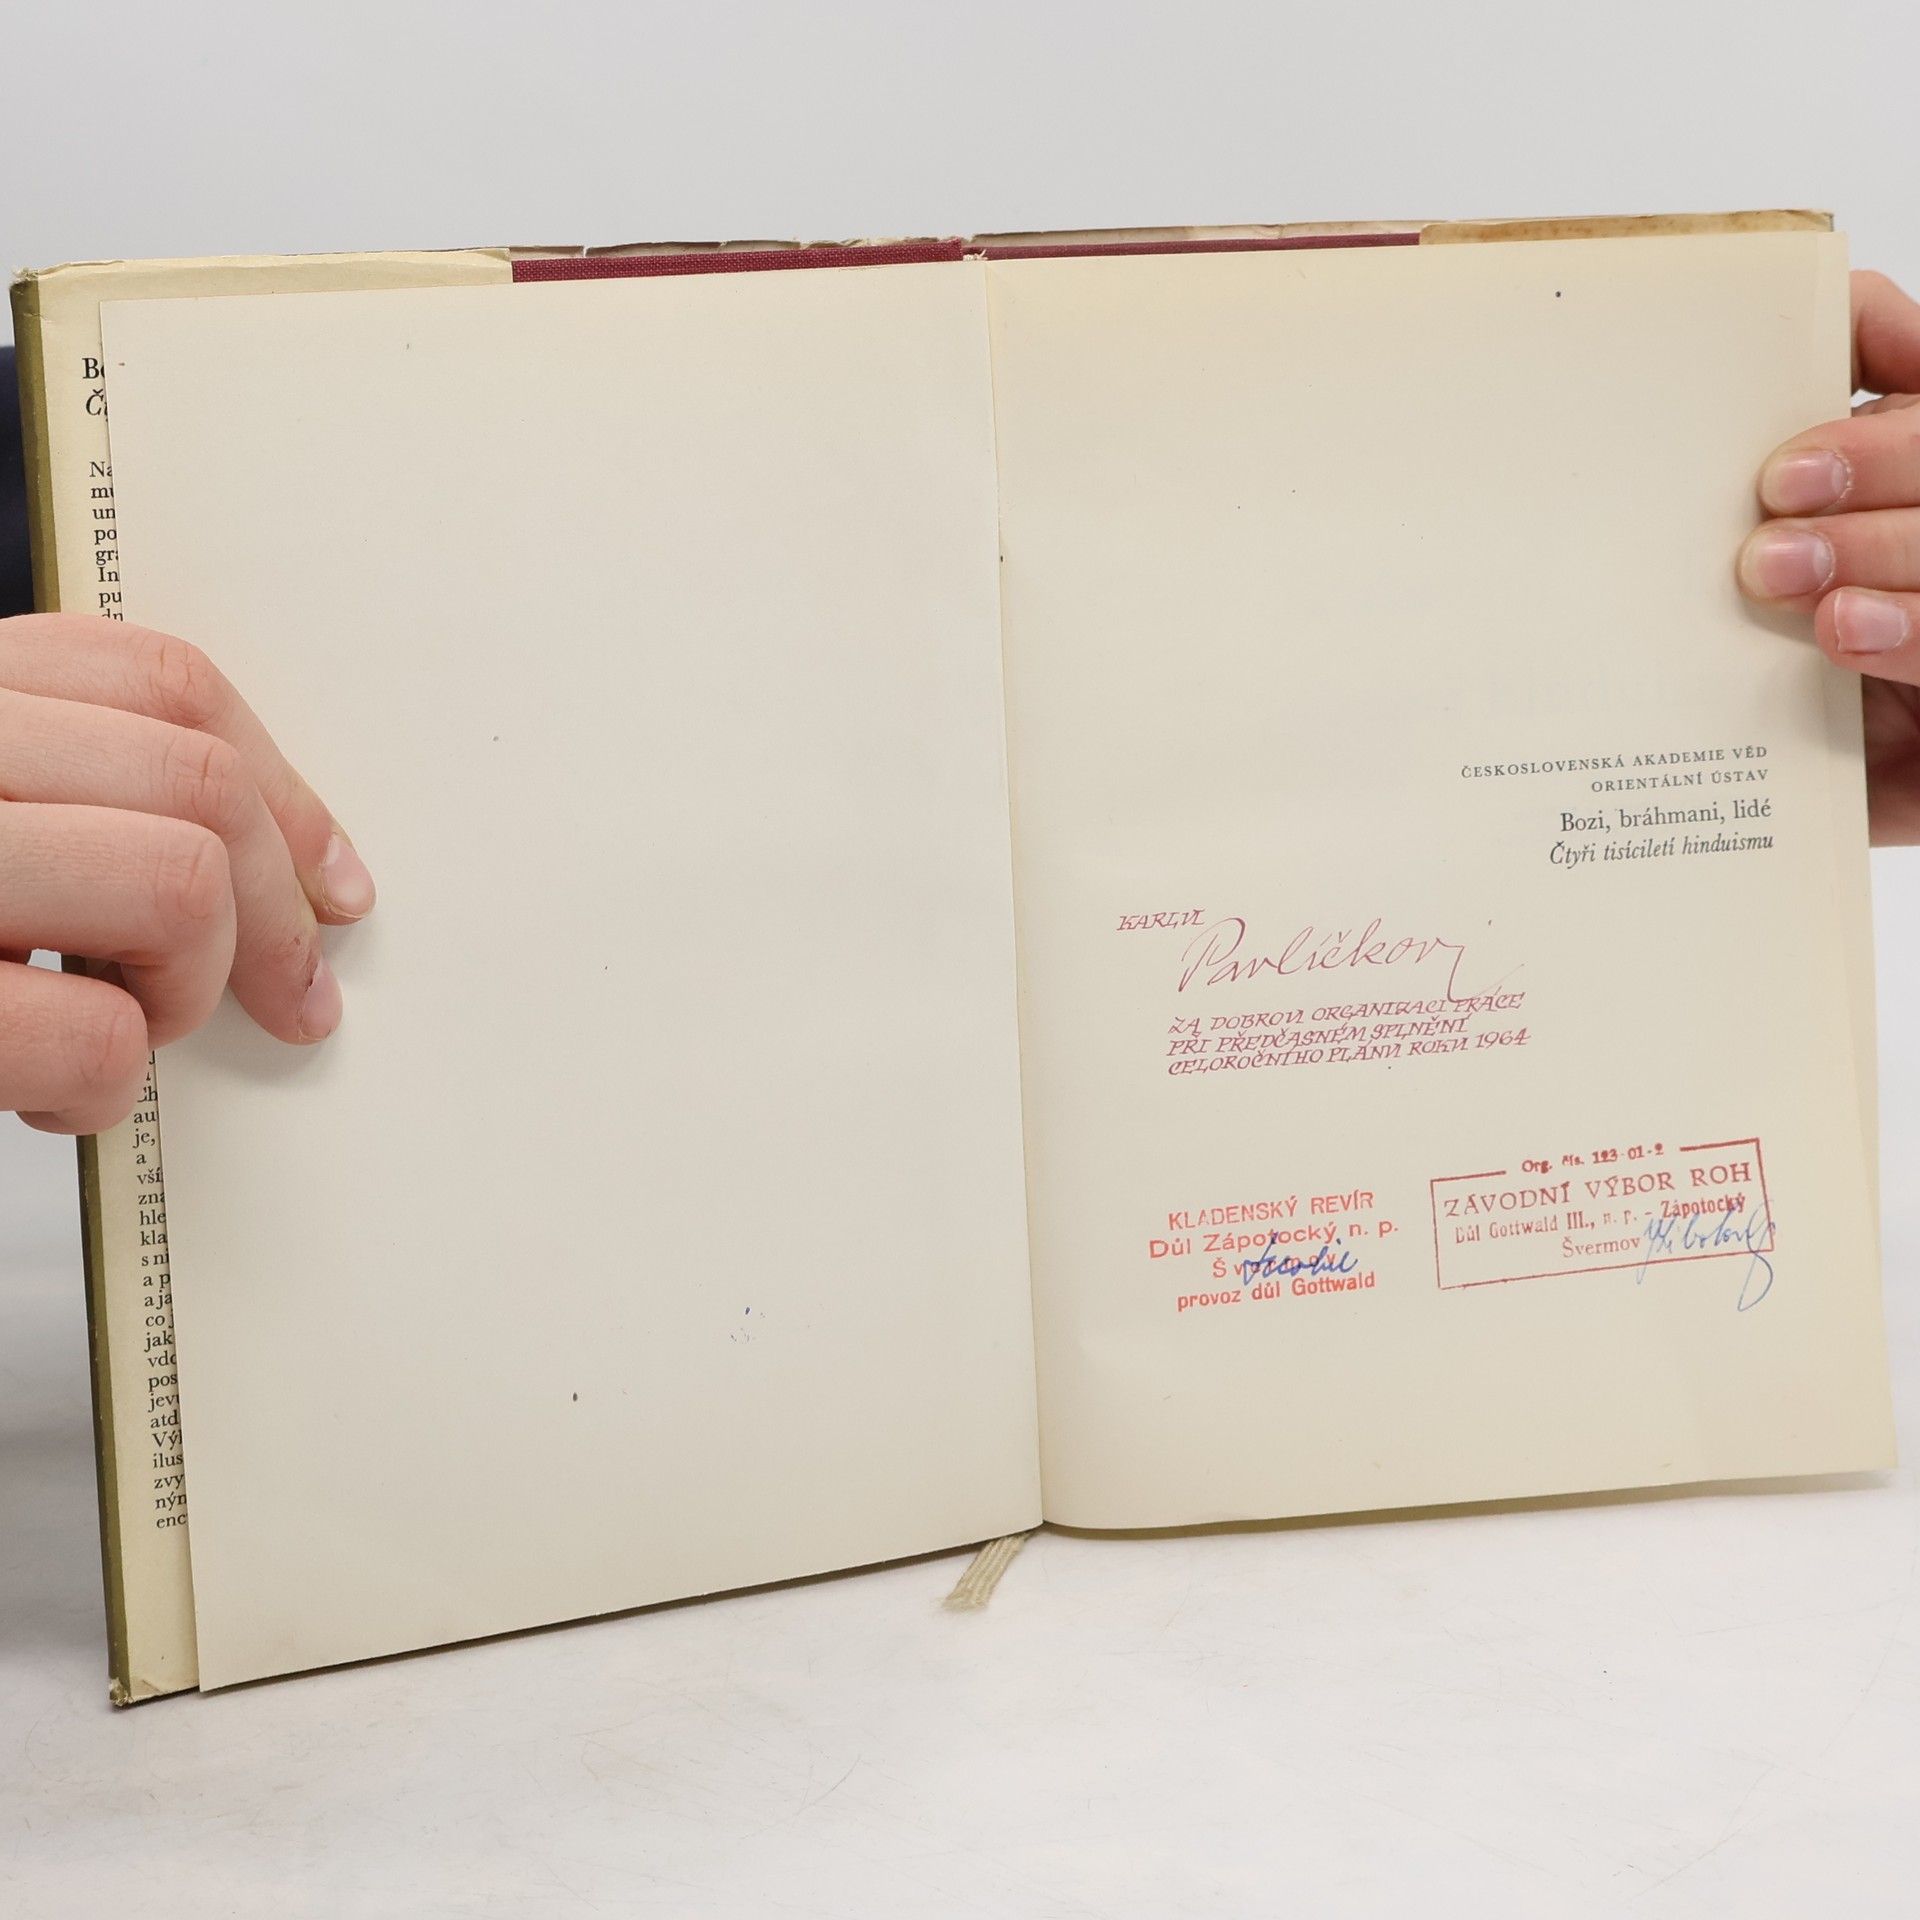 Na
po
In
pu
au
je,
a
vší
hle
kla
s ni
a p
a ja
co j
jak
pos
atd
Vý
ilus
zvy
ČESKOSLOVENSKÁ AKADEMIE VĚD
ORIENTÁLNÍ ÚSTAV
Bozi, bráhmani, lidé
Čtyři tisíciletí hinduismu
KARLU
Pavlíčkovi
ZA DOBROU ORGANIZACI PRÁCE
PŘI PŘEDČASNÉM SPLNĚNÍ
CELOROČNÍHO PLÁNU ROKU 1964
KLADENSKÝ REVÍR
Důl Zápotocký, n. p.
Švermov
provoz důl Gottwald
Org. čís. 123-01-2
ZÁVODNÍ VÝBOR ROH
Důl Gottwald III., n. p. - Zápotocký
Švermov